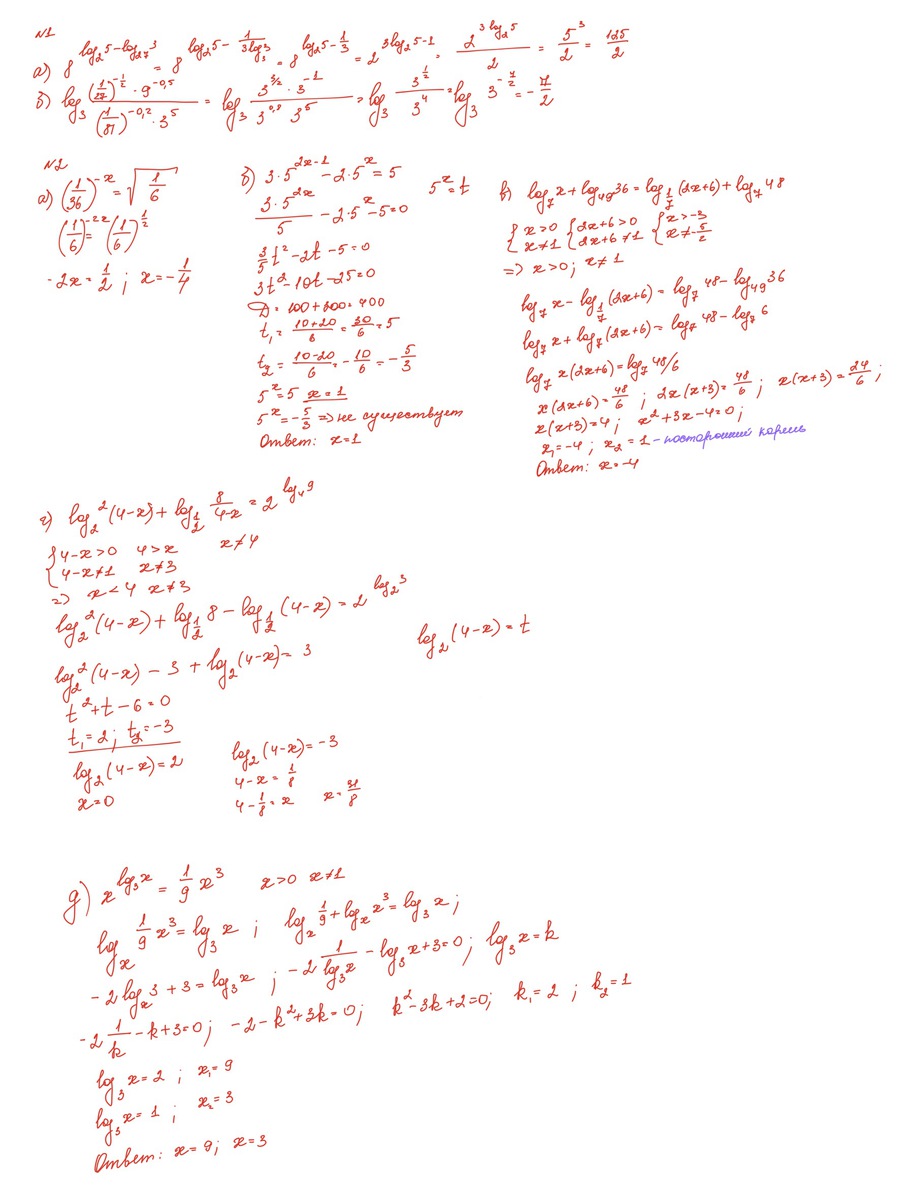 №1
а) 8^(log_2 5 − log_27 3) = 8^(log_2 5 − 1/(3 log_3 3)) = 8^(log_2 5 − 1/3) = 2^(3 log_2 5 − 1) = 2^(3 log_2 5)/2 = 5^3/2 = 125/2
б) log_3 ((1/27)^(−1/2) · 9^(−0,5))/((1/81)^(−0,2) · 3^5) = log_3 (3^(3/2) · 3^(−1))/(3^(0,8) 3^5) = log_3 3^(1/2)/3^4 = log_3 3^(−7/2) = −7/2
№2
а) (1/36)^(−x) = √(1/6)
(1/6)^(−2x) = (1/6)^(1/2)
−2x = 1/2 ; x = −1/4
б) 3·5^(2x−1) − 2·5^x = 5
(3·5^(2x))/5 − 2·5^x − 5 = 0 5^x = t
3/5 t² − 2t − 5 = 0
3t² − 10t − 25 = 0
D = 100 + 300 = 400
t_1 = (10+20)/6 = 30/6 = 5
t_2 = (10−20)/6 = −10/6 = −5/3
5^x = 5 x = 1
5^x = −5/3 => не существует
Ответ: x = 1
в) log_7 x + log_49 36 = log_(1/7) (2x+6) + log_7 48
{ x > 0 { 2x+6 > 0 { x > −3
{ x ≠ 1 { 2x+6 ≠ 1 { x ≠ −5/2
=> x > 0; x ≠ 1
log_7 x − log_(1/7) (2x+6) = log_7 48 − log_49 36
log_7 x + log_7 (2x+6) = log_7 48 − log_7 6
log_7 x(2x+6) = log_7 48/6
x(2x+6) = 48/6 ; 2x(x+3) = 48/6 ; x(x+3) = 24/6 ;
x(x+3) = 4 ; x² + 3x − 4 = 0 ;
x_1 = −4 ; x_2 = 1 – посторонний корень
Ответ: x = −4
г) log_2² (4−x) + log_(1/2) 8/(4−x) = 2^(log_4 9)
{ 4−x > 0 4 > x x ≠ 4
{ 4−x ≠ 1 x ≠ 3
=> x < 4 x ≠ 3
log_2² (4−x) + log_(1/2) 8 − log_(1/2) (4−x) = 2^(log_2 3)
log_2 (4−x) = t
log_2² (4−x) − 3 + log_2 (4−x) = 3
t² + t − 6 = 0
t_1 = 2 ; t_2 = −3
log_2 (4−x) = 2
x = 0
log_2 (4−x) = −3
4−x = 1/8
4 − 1/8 = x x = 31/8
д) x^(log_3 x) = 1/9 x³ x > 0 x ≠ 1
log_x 1/9 x³ = log_3 x ; log_x 1/9 + log_x x³ = log_3 x ;
−2 log_x 3 + 3 = log_3 x ; −2 1/(log_3 x) − log_3 x + 3 = 0 ; log_3 x = k
−2 1/k − k + 3 = 0 ; −2 − k² + 3k = 0 ; k² − 3k + 2 = 0 ; k_1 = 2 ; k_2 = 1
log_3 x = 2 ; x_1 = 9
log_3 x = 1 ; x_2 = 3
Ответ: x = 9 ; x = 3